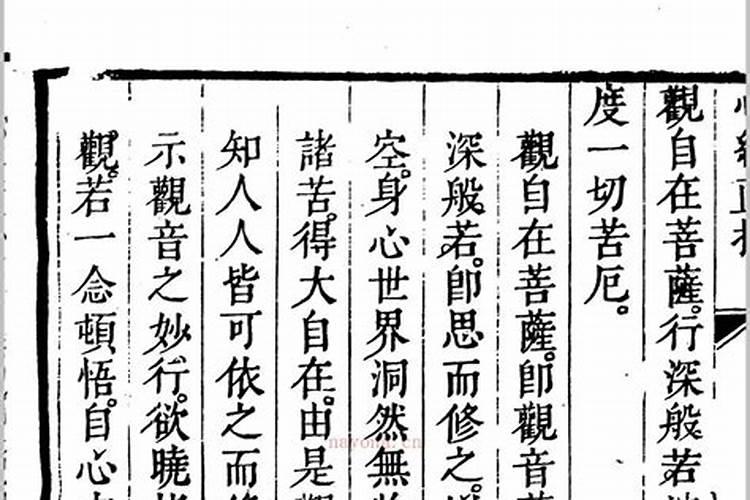 觀自在菩薩。行深般若
度一切苦厄。
觀自在菩薩。卽觀音菩
深般若。卽思而修之。
空。身心世界洞然無
諸苦。得大自在。由是
知人人皆可依之而
示觀音之妙行。欲曉
觀。若一念頓悟。自心
nayona.cn